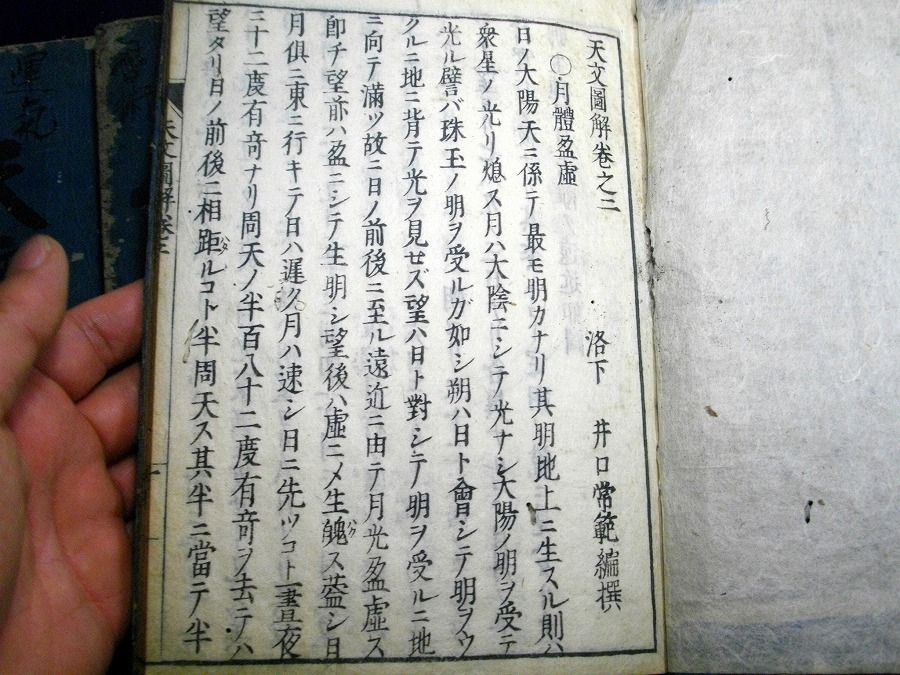 天文圖解卷之三　洛下　井口常範編撰
〇月體盈虛
日ノ大陽天ニ係テ最モ明カナリ其明地上ニ生スル則ハ
衆星ノ光リ熄ス月ハ大陰ニシテ光ナシ大陽ノ明ヲ受テ
光ル譬バ珠玉ノ明ヲ受ルガ如シ朔ハ日ト會シテ明ヲウ
クルニ地ニ背テ光ヲ見セズ望ハ日ト對シテ明ヲ受ルニ地
ニ向テ滿ツ故ニ日ノ前後ニ至ル遠近ニ由テ月光盈虛ス
卽チ望前ハ盈ニシテ生明シ望後ハ虛ニメ生魄ス蓋シ日
月俱ニ東ニ行キテ日ハ遲ク月ハ速シ日ニ先ツコト一晝夜
ニ十二度有奇ナリ周天ノ半百八十二度有奇ヲ去テハ
望タリ日ノ前後ニ相距ルコト半周天ス其半ニ當テ半
天文圖解卷三
運氣